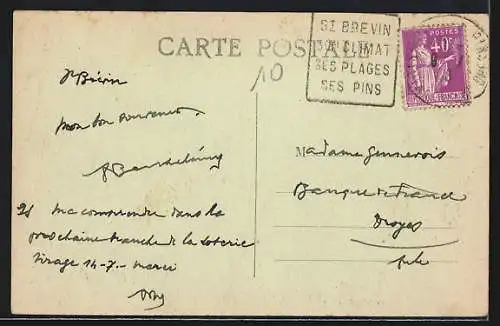 CARTE POSTALE
ST BREVIN
SON CLIMAT
SES PLAGES
SES PINS
POSTES
40c
10
St Brévin
mon bon souvenir
Madame Gennevois
Banque de France
Troyes
Aube
me comprendre dans la
prochaine tranche de la loterie
tirage 14-7- merci